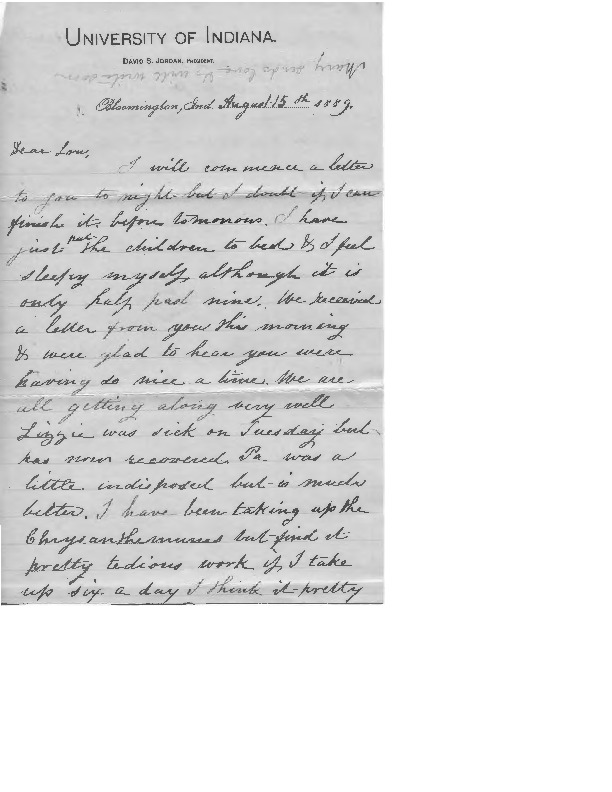 UNIVERSITY OF INDIANA.
DAVID S. JORDAN, PRESIDENT.
Mary sends love & will write soon
Bloomington, Ind. August 15th 1889.
Dear Lou,
I will commence a letter
to you to night but I doubt if I can
finish it before tomorrow. I have
just put the children to bed & I feel
sleepy myself, although it is
only half past nine. We received
a letter from you this morning
& were glad to hear you were
having so nice a time. We are
all getting along very well
Lizzie was sick on Tuesday but
has now recovered. Pa was a
little indisposed but is much
better. I have been taking up the
Chrysanthemums but find it
pretty tedious work if I take
up six a day I think it pretty